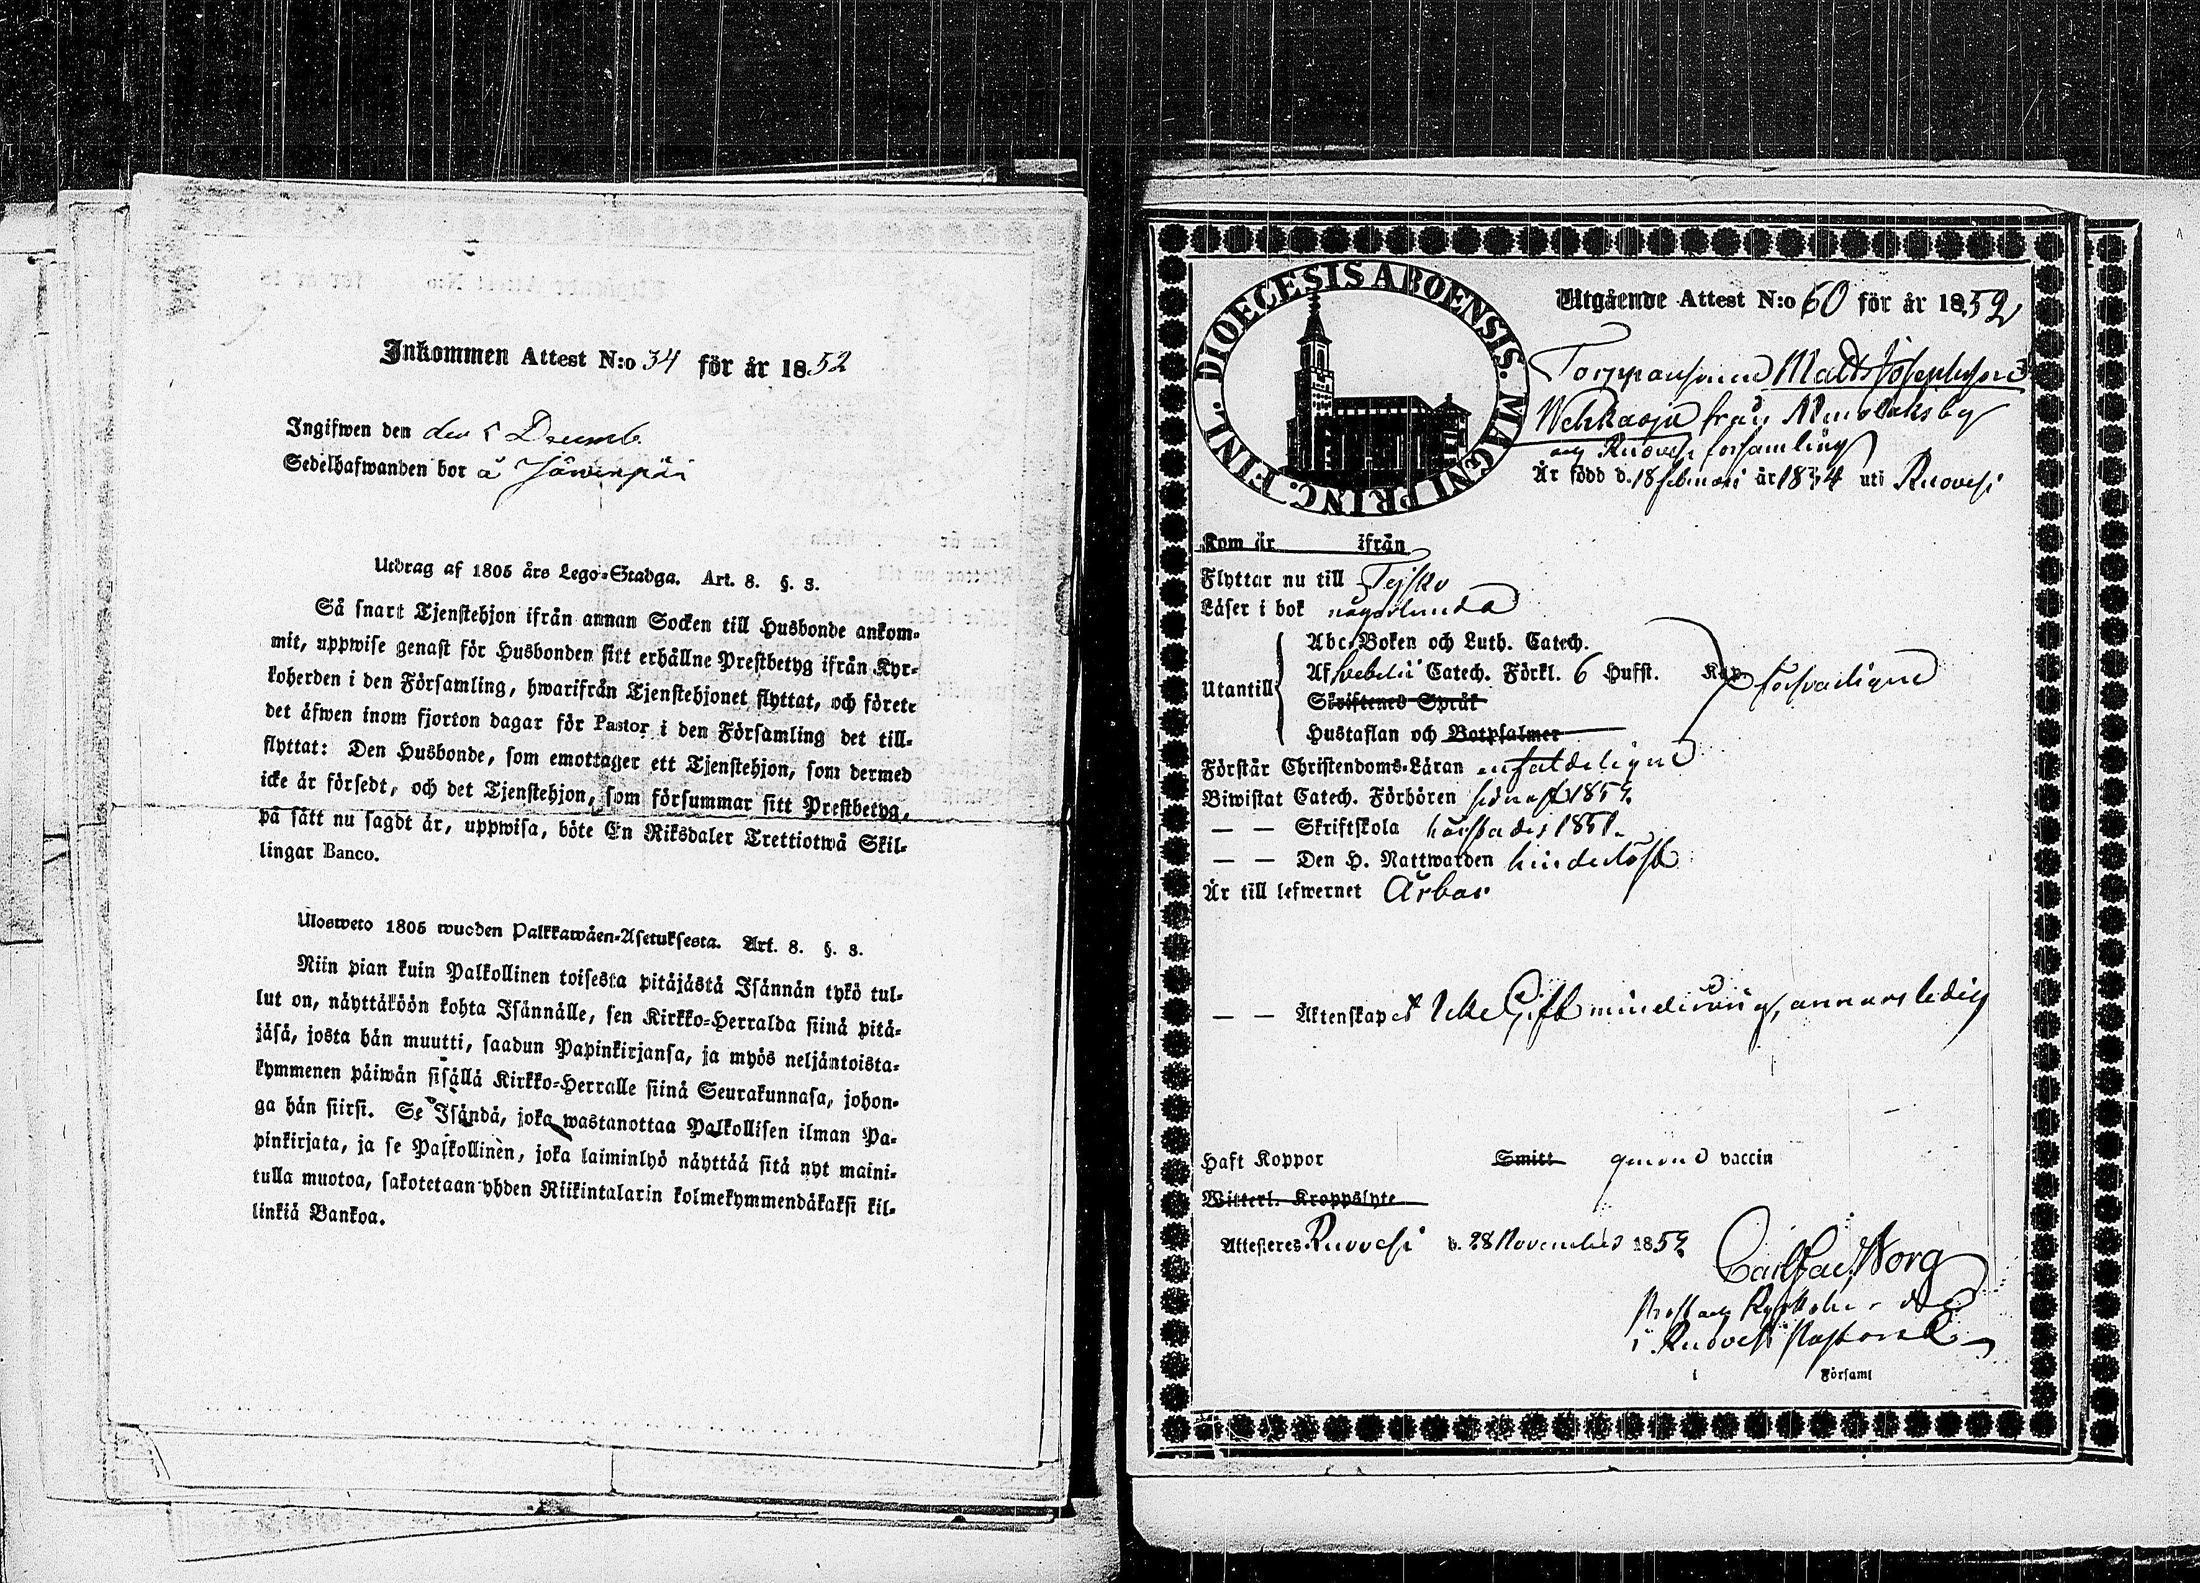 Inkommen Attest N:o 34 för år 1852
Ingifwen den den 5 Decemb.
Sedelhafwanden bor å Jäwenpää
Utdrag af 1805 års Lego-Stadga. Art. 8. §. 3.
Så snart Tjenstehjon ifrån annan Socken till Husbonde ankom-
mit, uppwise genast för Husbonden sitt erhållne Prestbetyg ifrån Kyr-
koherden i den Församling, hwarifrån Tjenstehjonet flyttat, och förete
det äfwen inom fjorton dagar för Pastor i den Församling det till-
flyttat: Den Husbonde, som emottager ett Tjenstehjon, som dermed
icke är försedt, och det Tjenstehjon, som försummar sitt Prestbetyg,
på sätt nu sagdt är, uppwisa, böte En Riksdaler Trettiotwå Skil-
lingar Banco.
Ulosweto 1805 wuoden Palkkawäen-Asetuksesta. Art. 8. §. 3.
Niin pian kuin Palkollinen toisesta pitäjästä Isännän tykö tul-
lut on, näyttäköön kohta Isännälle, sen Kirkko-Herralda siinä pitä-
jäsä, josta hän muutti, saadun Papinkirjansa, ja myös neljäntoista-
kymmenen päiwän sisällä Kirkko-Herralle siinä Seurakunnasa, johon-
ga hän siirsi. Se Isändä, joka wastanottaa Palkollisen ilman Pa-
pinkirjata, ja se Palkollinen, joka laiminlyö näyttää sitä nyt maini-
tulla muotoa, sakotetaan yhden Riikintalarin kolmekymmendäkaksi kil-
linkiä Bankoa.
DIOECESIS ABOENSIS. MAGNI PRINC. FINL.
Utgående Attest N:o 60 för år 1852
Torpparsonen Matts Josephsson
Wehkaoja från Muroleksby
och Ruovesi församling
Är född d. 18 februari år 1834 uti Ruovesi
Kom år ifrån
Flyttar nu till Tejsko
Läser i bok någorlunda
Abc-Boken och Luth. Catech.
Utantill Af Svebelii Catech. Förkl. 6 Hufst. Kap. försvarligen
Skriftenes Språk
Hustaflan och Botpsalmer
Förstår Christendoms-Läran enfaldeligen
Biwistat Catech. Förhören senast 1852.
— — Skriftskola härstädes 1851.
— — Den H. Nattwarden hinderlöst
Är till lefwernet Ärbar
— — Äktenskapet Icke Gift minderårig, annars ledig
Haft Koppor Smitt genom vaccin
Witterl. Kroppslyte
Attesteras Ruovesi d. 28 November 1852
Carl Jac. Norg
Prost och Kyrkoherde
i Ruovesi Pastorat
i Församl